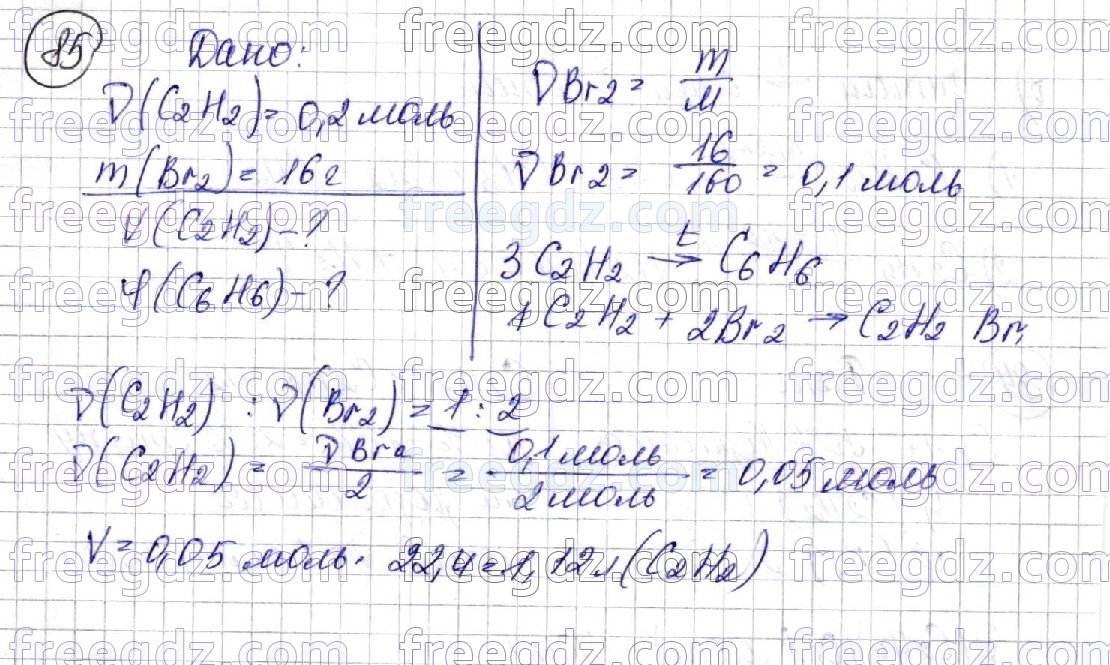 85
Дано:
ν(C₂H₂)=0,2 моль
m(Br₂)=16г
V(C₂H₂)-?
φ(C₆H₆)-?
νBr₂= m/M
νBr₂= 16/160 = 0,1 моль
3C₂H₂ →t C₆H₆
1C₂H₂ + 2Br₂ → C₂H₂ Br
ν(C₂H₂) : ν(Br₂)=1:2
ν(C₂H₂)= νBr₂/2 = 0,1 моль/2 моль = 0,05 моль
V=0,05 моль· 22,4=1,12л(C₂H₂)
freegdz.com